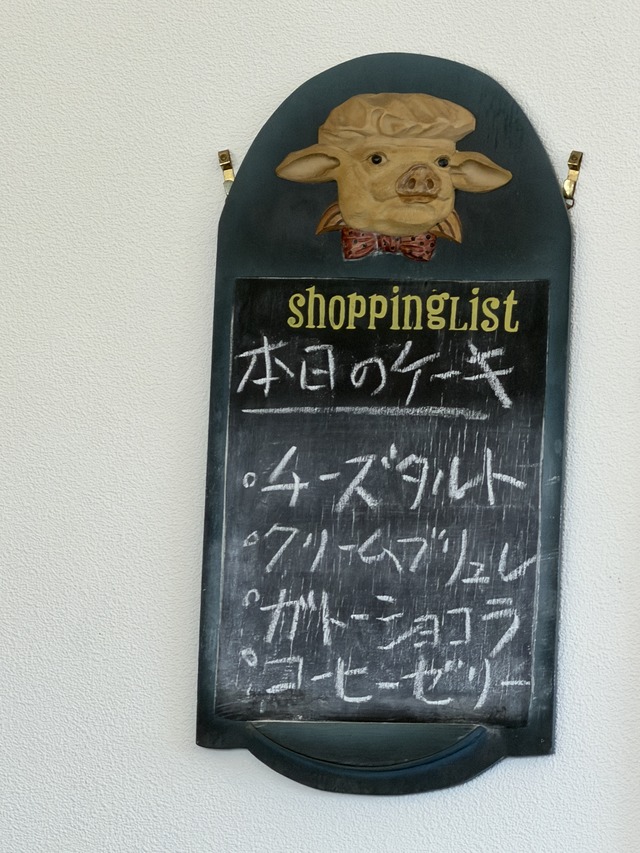 shoppingList
本日のケーキ
○チーズタルト
○クリームブリュレ
○ガトーショコラ
○コーヒーゼリー